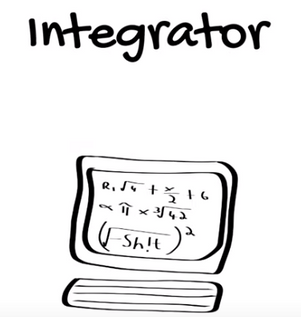 Integrator
R, √4 + x/2 + 6
∝ π × ³√42
(√-Sh!t)²